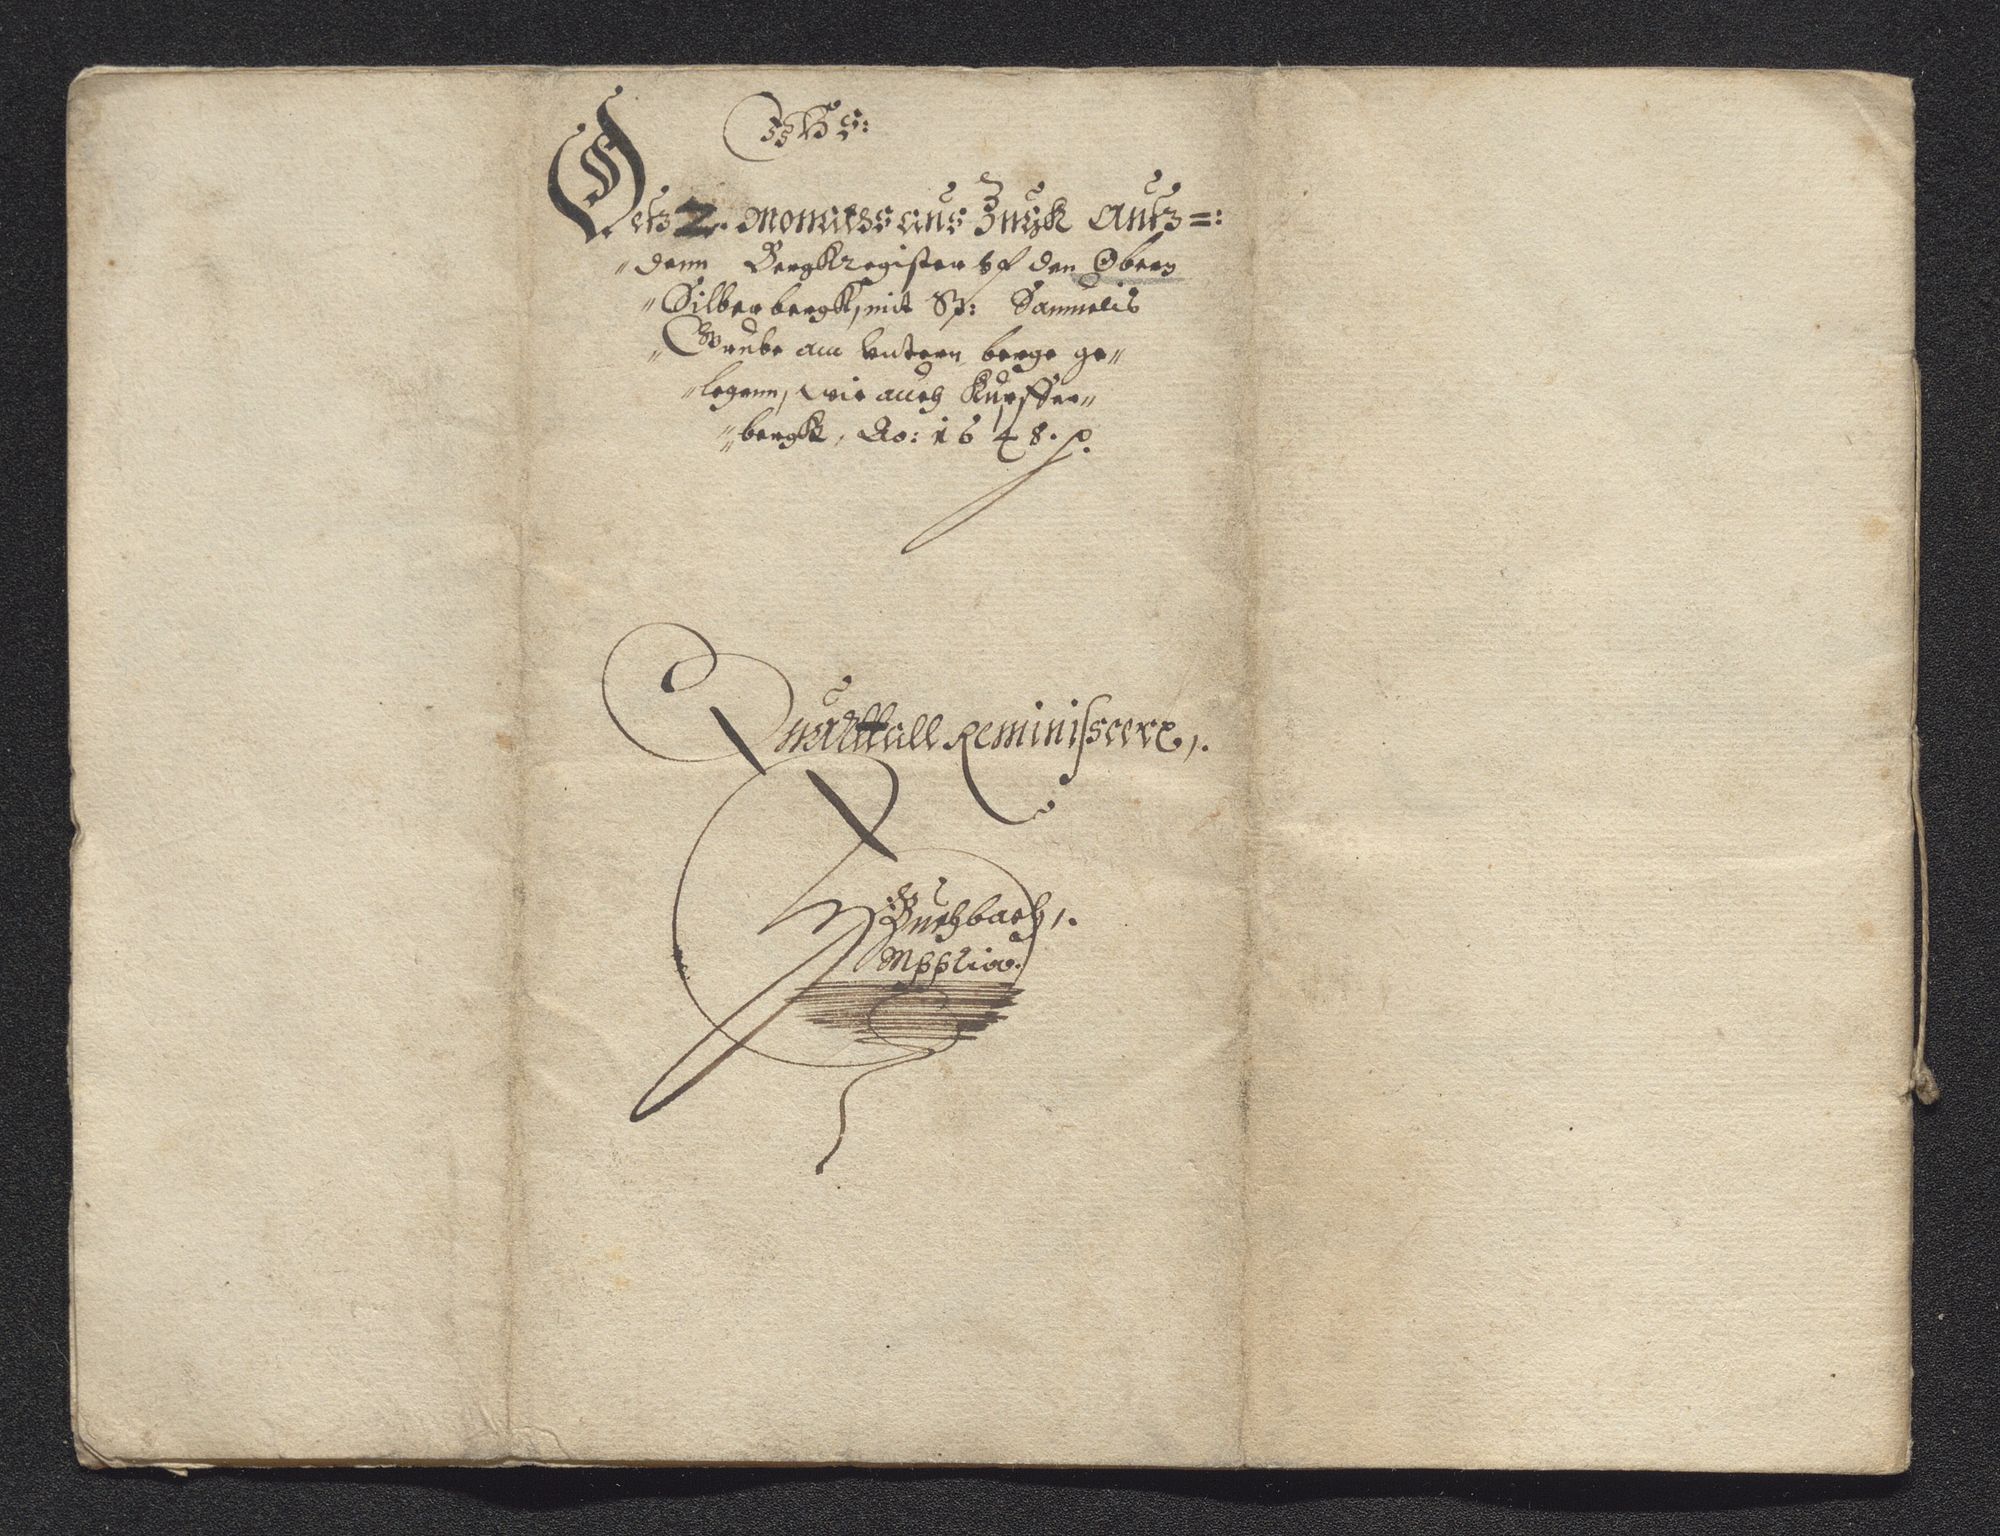 Detz 2. Monats aus Zugk Autz =:
"denn Bergkregister vf den Obern
"Silberbergk, mit St: Samuelis
"Grube am Vntern berge ge"
"legenn, wie auch Kupffer"
"bergk, Ao: 1648. p.
Quarttall Reminisscere,.
Buchbach,.
Mppria.